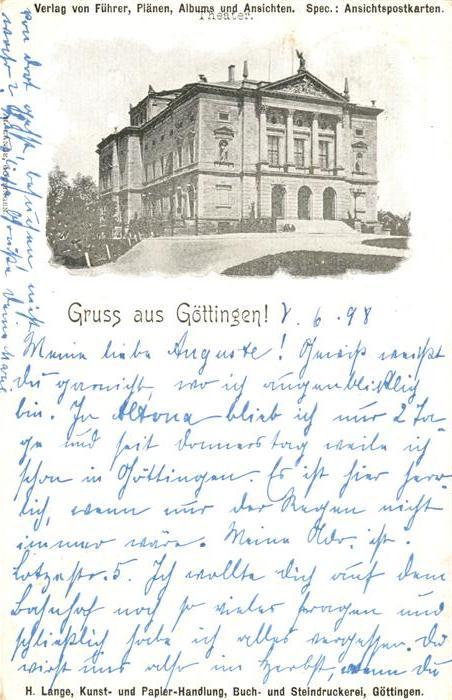 Verlag von Führer, Plänen, Albums und Ansichten. Spec.: Ansichtspostkarten.
Theater.
Gruss aus Göttingen! 8. 6. 98
Meine liebe Auguste! Gewiß weißt
du garnicht, wo ich augenblicklich
bin. In Altona blieb ich nur 2 Ta-
ge und seit Donnerstag weile ich
schon in Göttingen. Es ist hier herr-
lich, wenn nur der Regen nicht
immer wäre. Meine Adr. ist.
Lotzestr. 5. Ich wollte dich auf dem
Bahnhof noch so vieles fragen und
schließlich habe ich alles vergessen. Du
wirst uns also im Herbst, wenn du
von dort gehst, besuchen, nicht
wahr? Grüße Deine
H. Lange, Kunst- und Papier-Handlung, Buch- und Steindruckerei, Göttingen.